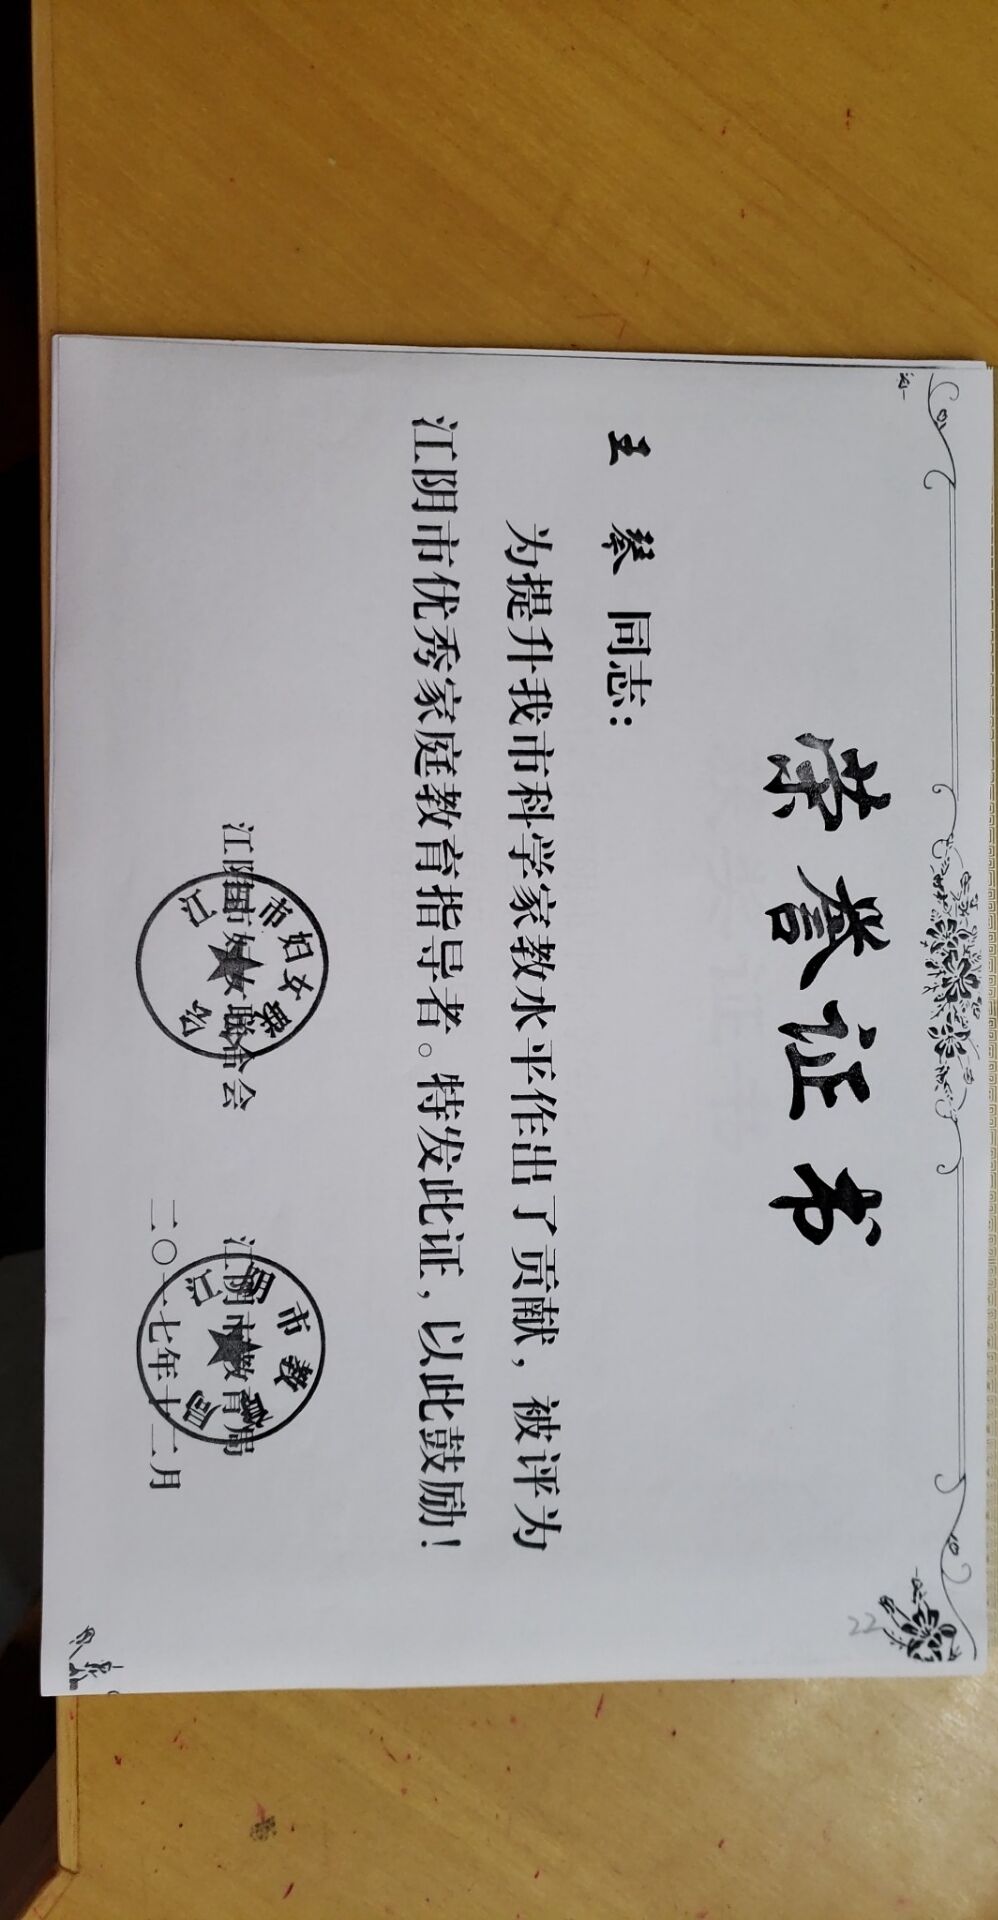 荣誉证书
王琴 同志：
为提升我市科学家教水平作出了贡献，被评为
江阴市优秀家庭教育指导者。特发此证，以此鼓励！
江阴市妇女联合会
江阴市教育局
二〇一七年十二月
22